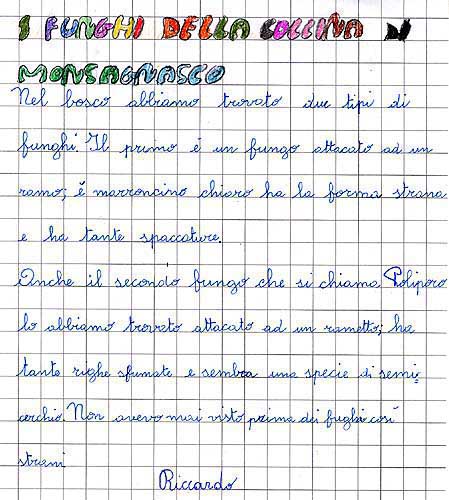 I FUNGHI DELLA COLLINA DI
MONSAGNASCO
Nel bosco abbiamo trovato due tipi di
funghi. Il primo é un fungo attacato ad un
ramo; é marroncino chiaro ha la forma strana
e ha tante spaccature.
Anche il secondo fungo che si chiama Poliporo
lo abbiamo trovato attacato ad un rametto; ha
tante righe sfumate e sembra una specie di semi=
cerchio. Non avevo mai visto prima dei fughi cosí
strani
Riccardo